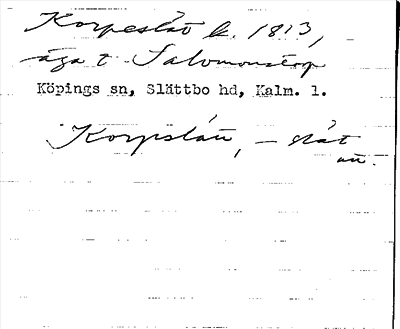 Korpeslät b. 1813,
äga t. Salomonstorp
Köpings sn, Slättbo hd, Kalm. l.
Korpslätt, – slät
an.